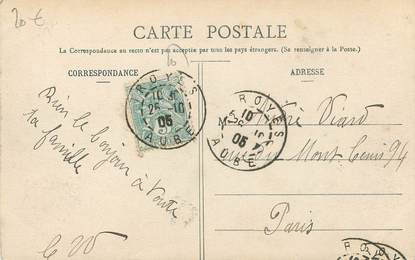 20 €
CARTE POSTALE
La Correspondance au recto n'est pas acceptée par tous les pays étrangers. (Se renseigner à la Poste.)
CORRESPONDANCE
ADRESSE
TROYES
25 10
05
AUBE
Bien le bonjour à toute
ta famille
le 25
TROYES
10
05
AUBE
M André Viard
rue du Mont Cenis 94
Paris
ROY